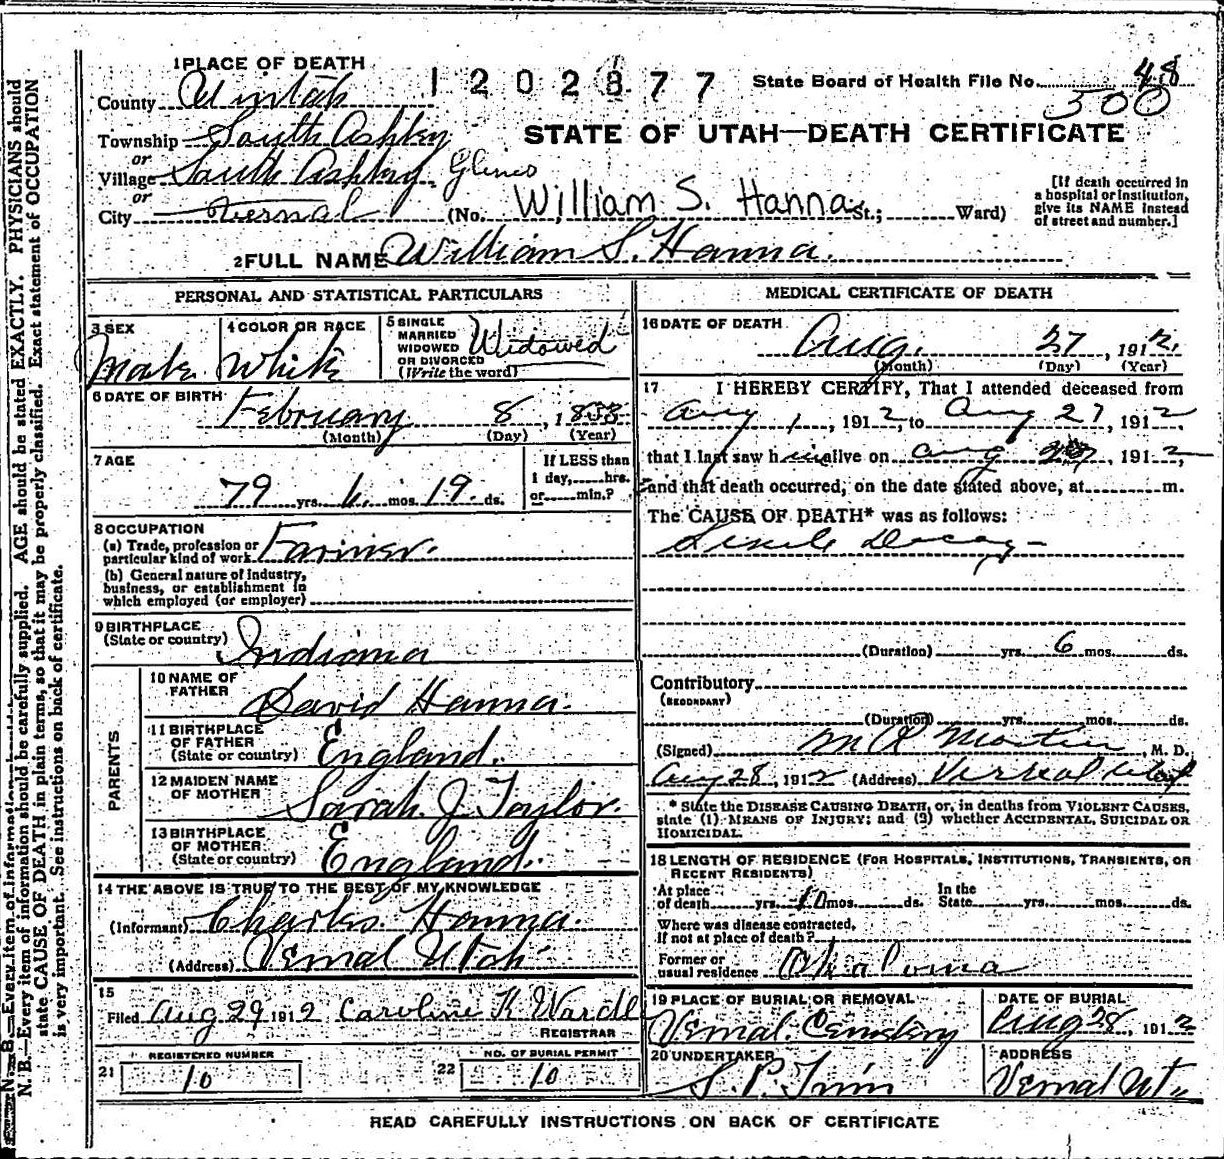 1 PLACE OF DEATH
1202877
State Board of Health File No. 48
500
County Uintah
Township South Ashley
STATE OF UTAH—DEATH CERTIFICATE
or
Village South Ashley Glines
or
City Vernal (No. William S. Hanna St.; Ward)
[If death occurred in a hospital or institution, give its NAME instead of street and number.]
2 FULL NAME William S. Hanna.
PERSONAL AND STATISTICAL PARTICULARS
3 SEX Male
4 COLOR OR RACE White
5 SINGLE MARRIED WIDOWED OR DIVORCED (Write the word) Widowed
6 DATE OF BIRTH February 8, 1833
(Month) (Day) (Year)
7 AGE 79 yrs. 6 mos. 19 ds.
If LESS than 1 day, hrs. or min.?
8 OCCUPATION
(a) Trade, profession or particular kind of work Farmer.
(b) General nature of industry, business, or establishment in which employed (or employer)
9 BIRTHPLACE
(State or country) Indiana
PARENTS
10 NAME OF FATHER David Hanna.
11 BIRTHPLACE OF FATHER (State or country) England.
12 MAIDEN NAME OF MOTHER Sarah J. Taylor.
13 BIRTHPLACE OF MOTHER (State or country) England.
14 THE ABOVE IS TRUE TO THE BEST OF MY KNOWLEDGE
(Informant) Charles Hanna.
(Address) Vernal Utah
15
Filed Aug 29 1912 Caroline K Wardle
REGISTRAR
21 REGISTERED NUMBER 10
22 NO. OF BURIAL PERMIT 10
MEDICAL CERTIFICATE OF DEATH
16 DATE OF DEATH
Aug. 27, 1912.
(Month) (Day) (Year)
17 I HEREBY CERTIFY, That I attended deceased from
Aug 1, 1912, to Aug 27, 1912,
that I last saw him alive on Aug 27, 1912,
and that death occurred, on the date stated above, at m.
The CAUSE OF DEATH* was as follows:
Senile Decay
(Duration) yrs. 6 mos. ds.
Contributory
(SECONDARY)
(Duration) yrs. mos. ds.
(Signed) Martin, M. D.
Aug 28, 1912 (Address) Vernal Utah
* State the DISEASE CAUSING DEATH, or, in deaths from VIOLENT CAUSES, state (1) MEANS OF INJURY; and (2) whether ACCIDENTAL, SUICIDAL OR HOMICIDAL.
18 LENGTH OF RESIDENCE (FOR HOSPITALS, INSTITUTIONS, TRANSIENTS, OR RECENT RESIDENTS)
At place of death yrs. 10 mos. ds. In the State yrs. mos. ds.
Where was disease contracted, If not at place of death?
Former or usual residence
19 PLACE OF BURIAL OR REMOVAL Vernal Cemetery
DATE OF BURIAL Aug 28, 1912
20 UNDERTAKER S. P.
ADDRESS Vernal Ut.
READ CAREFULLY INSTRUCTIONS ON BACK OF CERTIFICATE
N. B.—Every item of information should be carefully supplied. AGE should be stated EXACTLY. PHYSICIANS should state CAUSE OF DEATH in plain terms, so that it may be properly classified. Exact statement of OCCUPATION is very important. See instructions on back of certificate.